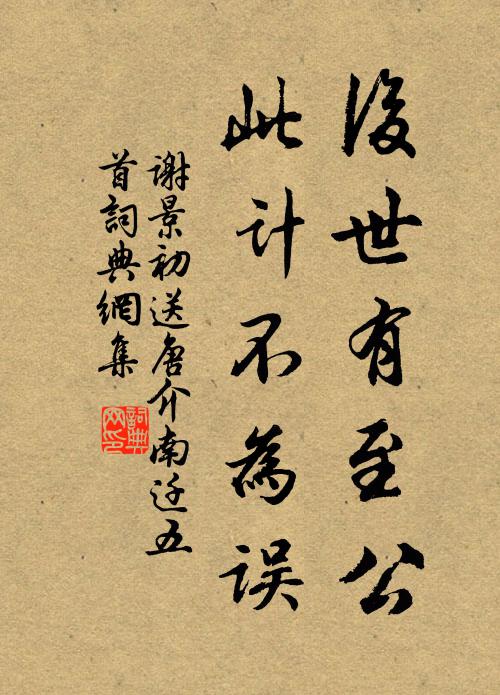 後世有至公
此计不為误
谢景初送唐介南迁五
首詞典網集
詞典
网印